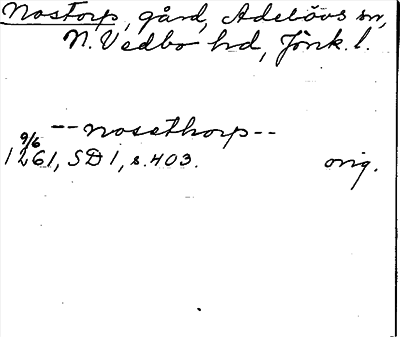 Nostorp, gård, Adelövs sn,
N. Vedbo hd, Jönk. l.
-- nossthorp --
9/6
1261, SD 1, s. 403. orig.